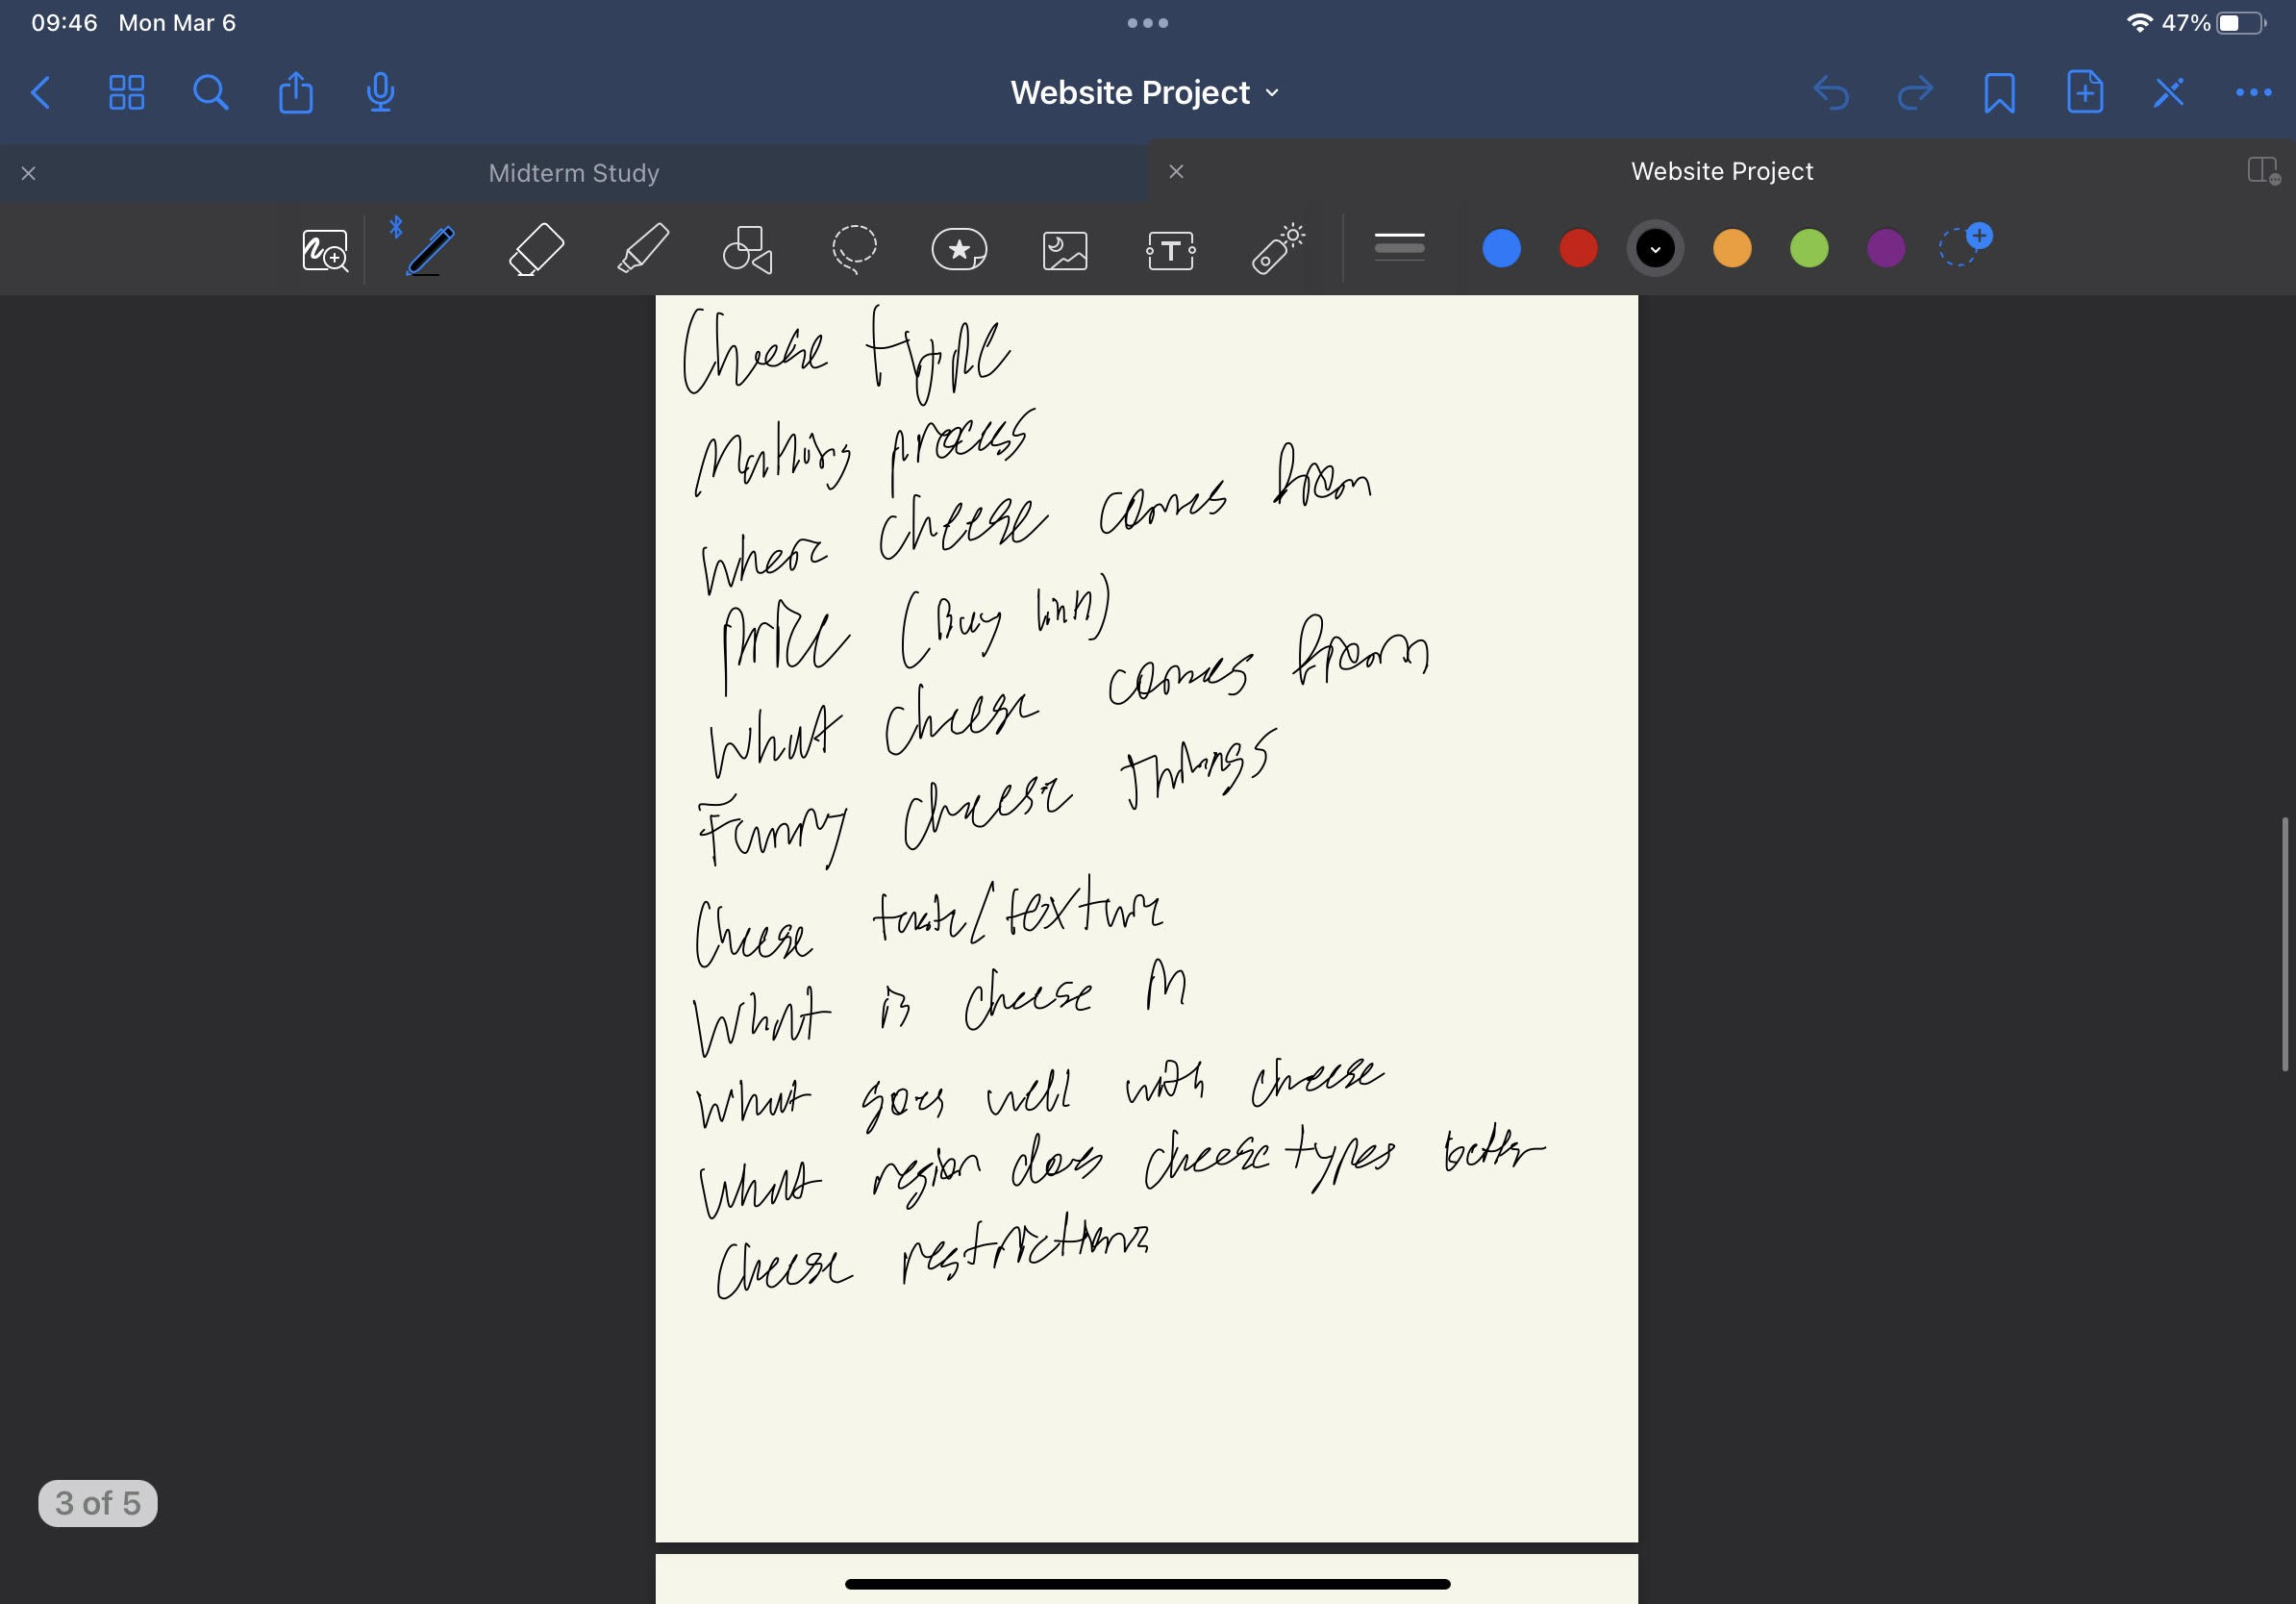 09:46 Mon Mar 6
47%
Website Project
Midterm Study
Website Project
T
Cheese type
Making process
where cheese comes from
price (Buy link)
What cheese comes from
Funny cheese things
Cheese taste/texture
What is cheese in
What goes well with cheese
What region does cheese types better
Cheese restrictions
3 of 5